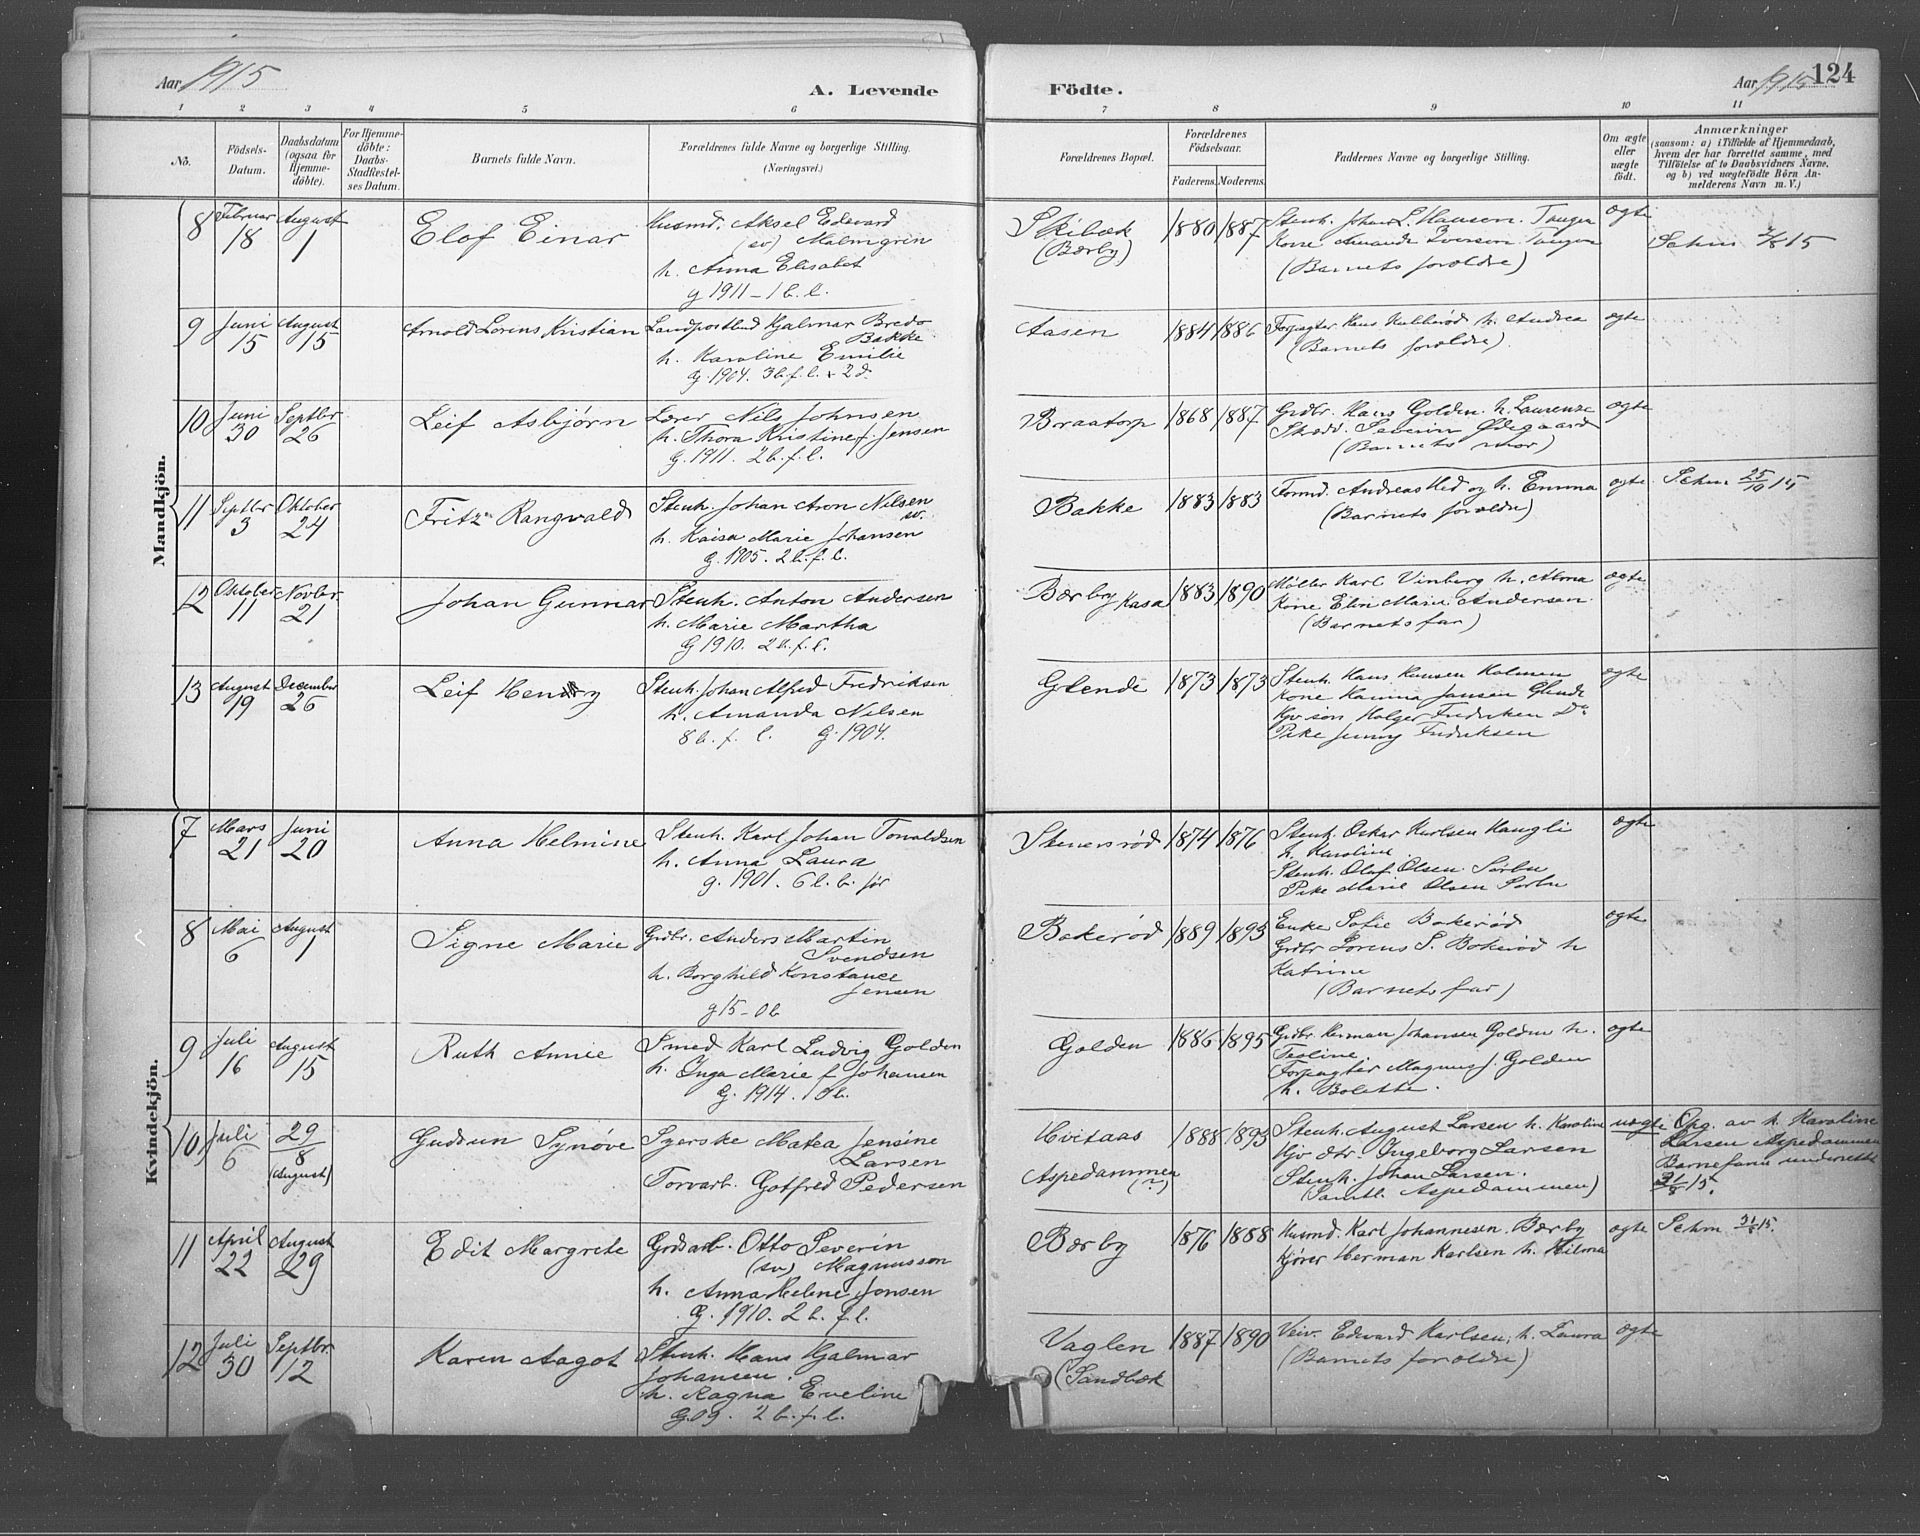 Aar 1915
A. Levende
Födte.
Aar 1915
124
1 2 3 4 5 6 7 8 9 10 11
No.
Födsels-Datum.
Daabsdatum (ogsaa for Hjemme-døbte).
For Hjemme-döbte: Daabs-Stadfæstel-ses Datum.
Barnets fulde Navn.
Forældrenes fulde Navne og borgerlige Stilling.
(Næringsvei.)
Forældrenes Bopæl.
Forældrenes Födselsaar.
Faderens. Moderens.
Faddernes Navne og borgerlige Stilling.
Om ægte eller uægte födt.
Anmærkninger
(saasom: a) i Tilfælde af Hjemmedaab, hvem der har forrettet samme, med Tilföielse af to Daabsvidners Navne, og b) ved uægtefödte Börn Anmelderens Navn m. V.)
Mandkjön.
8 Februar 18 August 1 Elof Einar
Husmd. Aksel Edevard
(sv) Malmgrin
h. Anna Elisabet
g 1911 - 1 b. l.
Skibæk
(Bærby)
1880 1887
Stenh. Johan L. Hansen. Tangen
Kone Amanda Iversen Tangen
(Barnets forældre)
ægte
Schm 2/8 15
9 Juni 15 August 15 Arnold Lorens Kristian
Landpostbud Hjalmar Bredo
Bakke
h. Karoline Emilie
G. 1904. 3 b. f. l. + 2 d.
Aasen
1884 1886
Forpagter Hans Hulberød h. Andrea
(Barnets forældre)
ægte
10 Juni 30 Septbr 26 Leif Asbjørn
Lærer Nils Johnsen
h. Thora Kristine f Jensen
G. 1911. 2 b. f. l.
Braatorp
1868 1887
Grdbr. Hans Golden h. Laurenze
Skodd. Severin Ødegaard
(Barnets mor)
ægte
11 Septbr 3 Oktober 24 Fritz Rangvald
Stenh. Johan Aron Nilsen
sv.
h. Kaisa Marie Johansen
G. 1905. 2 b. f. l.
Bakke
1883 1883
Formd. Andreas Hed og h. Emma
(Barnets forældre)
ægte
Schm 25/10 15
12 Oktober 11 Novbr. 21 Johan Gunnar
Stenh. Anton Andersen
h. Marie Martha
G 1910. 2 b. f. l.
Bærby Kasa
1883 1890
Møller Karl Vinberg h. Alma
Kone Elin Marie Andersen
(Barnets far)
ægte
13 August 19 December 26 Leif Henry
Stenh. Johan Alfred Fredriksen
h. Amanda Nilsen
8 b. f. l. G. 1904.
Glende
1873 1873
Stenh. Hans Hansen Holmen
Kone Hanna Jansen Glende
Hjv søn Holger Fredriksen Do
Pike Jenny Fredriksen
ægte
Kvindekjön.
7 Mars 21 Juni 20 Anna Helmine
Stenh. Karl Johan Tonaldsen
h. Anna Laura
g. 1901. 6 l. b. før
Stenersrød
1874 1876
Stenh. Oskar Karlsen Haugli
h. Karoline
Stenh. Olaf Olsen Sørbu
Pike Marie Olsen Sørbu
ægte
8 Mai 6 August 1 Signe Marie
Grdbr. Anders Martin
Svendsen
h. Borghild Konstance
Jensen
g 15 - 0 b
Bokerød
1889 1893
Enke Sofie Bokerød
Grdbr Lorens S. Bokerød h
Katrine
(Barnets far)
ægte
9 Juli 16 August 15 Ruth Annie
Smed Karl Ludvig Golden
h. Inga Marie f Johansen
G. 1914. 0 b.
Golden
1886 1895
Grdbr Herman Johansen Golden h.
Teoline
Forpagter Magnus J. Golden
h. Bolette.
ægte
10 Juli 6 29/8 (August) Gudrun Synøve
Syerske Matea Jensine
Larsen
Torvarb. Gotfred Pedersen
Hvitaas
Aspedammen
(?)
1888 1893
Stenh. August Larsen h. Karoline
Hjv dtr Ingeborg Larsen
Stenh. Johan Larsen.
(Samtl. Aspedammen)
uægte
Opg. av h. Karoline
Larsen Aspedammen
31/8 15.
11 April 22 August 29 Edit Margrete
Grdsarb. Otto Severin
(sv) Magnusson
h. Anna Heline Jonsen
G. 1910. 2 b. f. l.
Bærby
1876 1888
Husmd. Karl Johannesen. Bærby
Kjører Herman Karlsen h. Hilma
ægte
Schm 31/8 15.
12 Juli 30 Septbr. 12 Karen Aagot
Stenh. Hans Hjalmar
Johansen.
h. Ragna Eveline
G. 09. 2 b. f. l.
Vaglen
(Sandbæk
1887 1890
Veiv. Edevard Karlsen, h. Laura
(Barnets forældre)
ægte